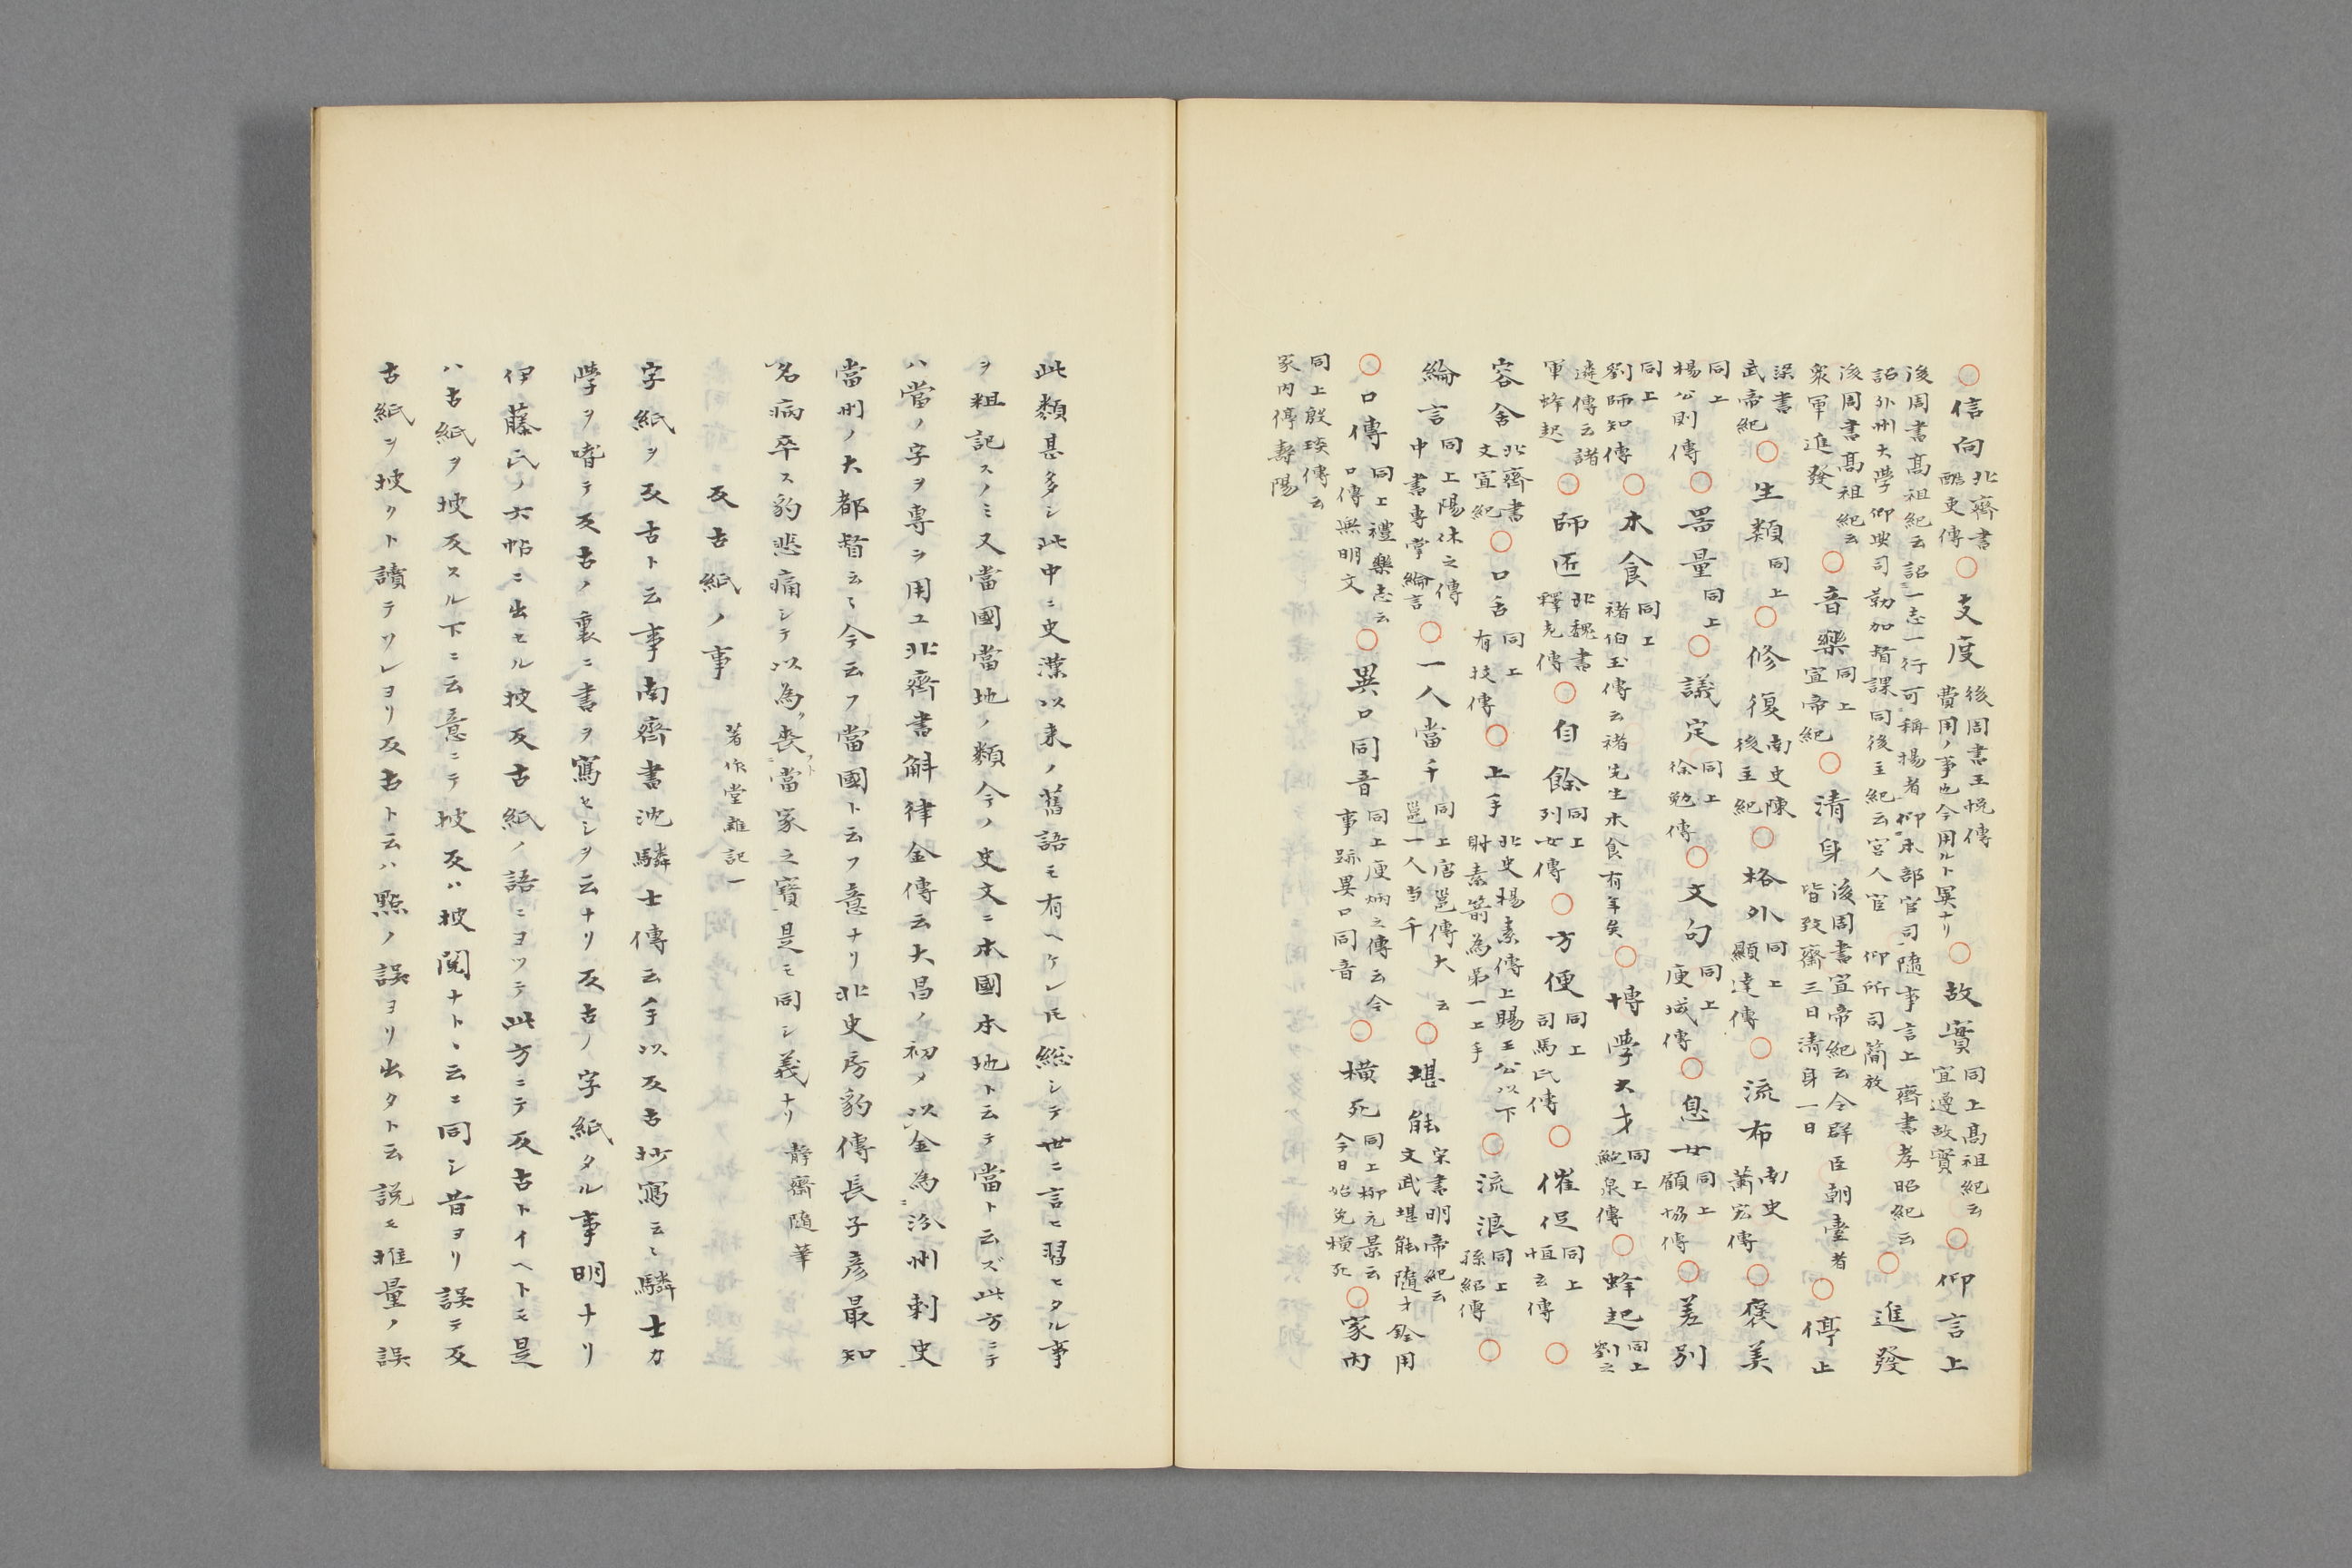 ○信向 北齊書 酷吏傳 ○支度 後周書王悦傳 費用ノ事也今用ルト異ナリ ○故實 同上高祖紀云 宜遵故實 ○仰言上
後周書高祖紀云詔一志一行可稱揚者仰本部官司隨事言上 齊書孝昭紀云
詔外州大學仰典司勤加督課同後主紀云宮人官 仰所司簡放 ○進發
後周書高祖紀云 衆軍進發 ○音樂 同上 宣帝紀 ○清身 後周書宣帝紀云令群臣朝臺者 皆致齋三日清身一日 ○停止
梁書 武帝紀 ○生類 同上 ○修復 南史陳 後主紀 ○格外 同上 顯達傳 ○流布 南史 蕭宏傳 ○褒美
同上 楊公則傳 ○器量 同上 ○議定 同上 徐勉傳 ○文句 同上 庾域傳 ○息女 同上 顧協傳 ○差別
同上 劉師知傳 ○木食 同上 褚伯玉傳云褚先生木食有年矣 ○博學大才 同上 鮑泉傳 ○蜂起 同上 劉之
遴傳云諸 軍蜂起 ○師匠 北魏書 釋老傳 ○自餘 同上 列女傳 ○方便 同上 司馬氏傳 ○催促 同上 恒玄傳 ○
容舍 北齊書 文宣紀 ○口舌 同上 有技傳 ○上手 北史楊素傳上賜王公以下 射素箭為第一上手 ○流浪 同上 孫紹傳 ○
綸言 同上陽休之傳 中書專掌綸言 ○一人當千 同上唐邕傳大云 邕一人当千 ○堪能 宋書明帝紀云 文武堪能隨才銓用
○口傳 同上禮樂志云 口傳無明文 ○異口同音 同上庾炳之傳云今 事跡異口同音 ○橫死 同上柳元景云 今日始免横死 ○家内
同上殷琰傳云 家内停壽陽
此類甚多シ此中ニ史漢以来ノ舊語モ有ヘケレ𪜈総シテ世ニ言ヒ習ヒタル事
ヲ粗記スノミ又當國當地ノ類今ノ史文ニ本國本地ト云テ當ト云ズ此方ニテ
ハ當ノ字ヲ専ラ用ユ北齊書斛律金傳云大昌ノ初メ以金為汾州刺史
當州ノ大都督云々今云フ當國ト云フ意ナリ北史房豹傳長子彦最知
名病卒ス豹悲痛シテ以為喪當家之寳是モ同シ義ナリ 静齋隨筆
反古紙ノ事 著作堂雜記一
字紙ヲ反古ト云事南齊書沈驎士傳云手以反古抄寫云々驎士カ
學ヲ嗜テ反古ノ裏ニ書ヲ寫セシヲ云ナリ反古ノ字紙タル事明ナリ
伊藤氏ノ六帖ニ出セル披反古紙ノ語ニヨツテ此方ニテ反古トイヘトモ是
ハ古紙ヲ披反スル下ニ云意ニテ披反ハ披閲ナト丶云ニ同シ昔ヨリ誤テ反
古紙ヲ披クト讀テソレヨリ反古ト云ハ點ノ誤ヨリ出タト云説モ推量ノ誤